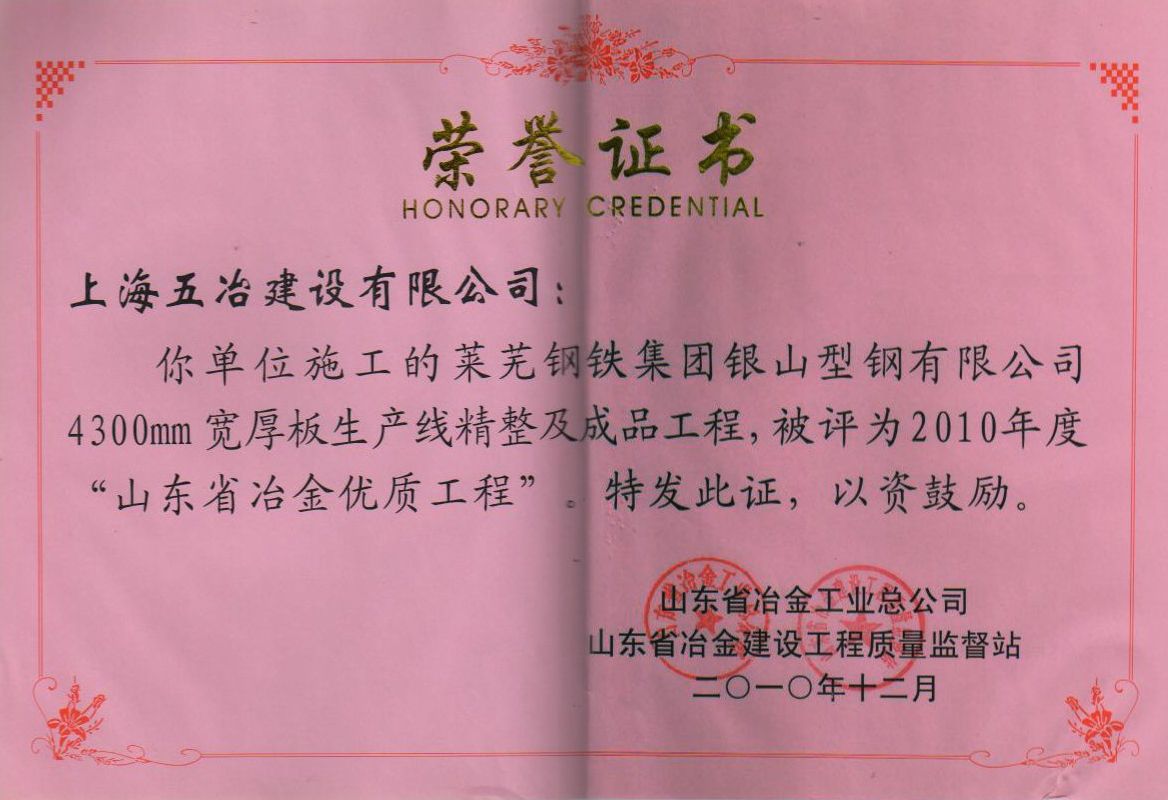 荣誉证书
HONORARY CREDENTIAL
上海五冶建设有限公司：
你单位施工的莱芜钢铁集团银山型钢有限公司
4300mm 宽厚板生产线精整及成品工程，被评为2010年度
“山东省冶金优质工程”。特发此证，以资鼓励。
山东省冶金工业总公司
山东省冶金建设工程质量监督站
二〇一〇年十二月